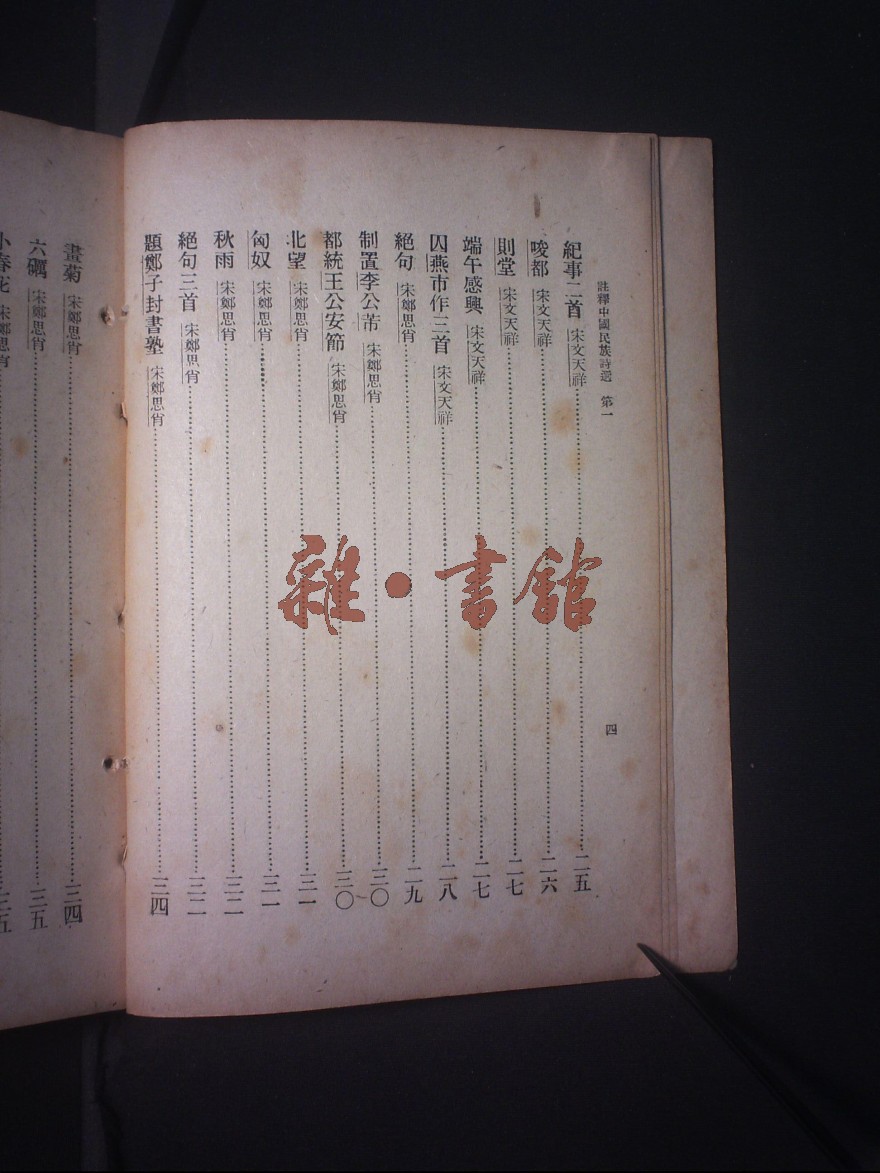 註釋中國民族詩選 第一 四
紀事二首 宋文天祥 二五
唆都 宋文天祥 二六
則堂 宋文天祥 二七
端午感興 宋文天祥 二七
囚燕市作三首 宋文天祥 二八
絕句 宋鄭思肖 二九
制置李公芾 宋鄭思肖 三〇
都統王公安節 宋鄭思肖 三〇
北望 宋鄭思肖 三一
匈奴 宋鄭思肖 三一
秋雨 宋鄭思肖 三二
絕句三首 宋鄭思肖 三二
題鄭子封書塾 宋鄭思肖 三四
畫菊 宋鄭思肖 三四
六礪 宋鄭思肖 三五
小春花 宋鄭思肖 三五
雜·書館